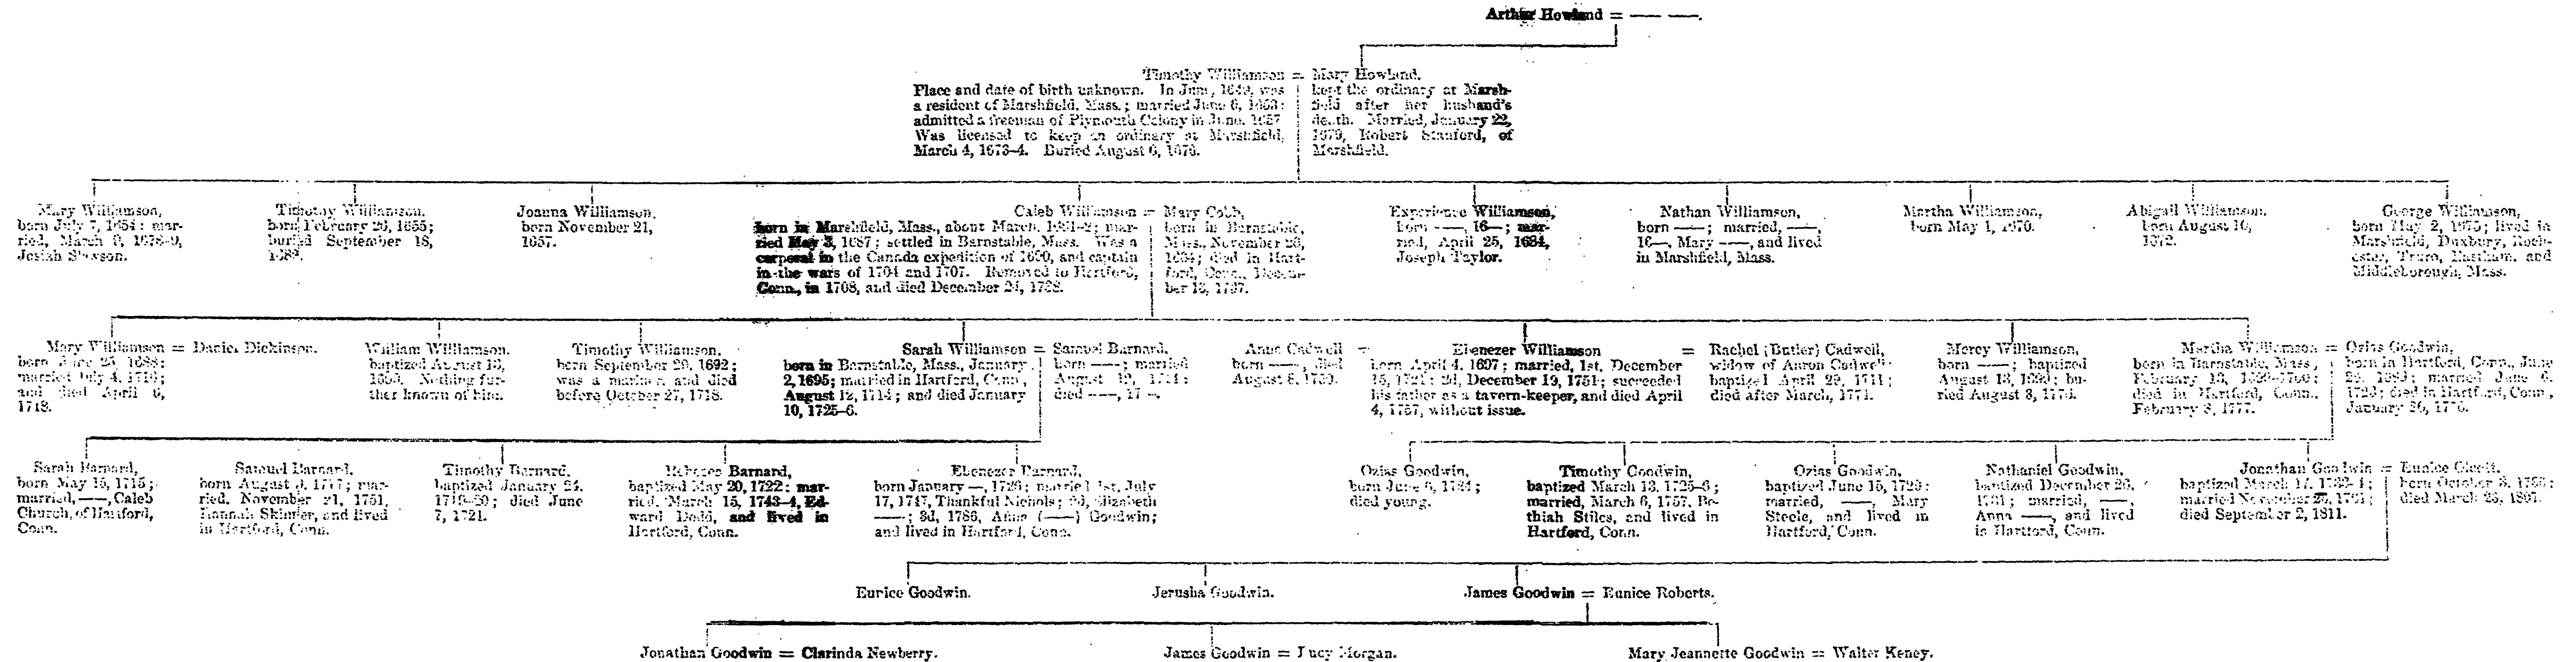 Arthur Howland = —— ——.
Timothy Williamson = Mary Howland.
Place and date of birth unknown. In June, 1649, was
a resident of Marshfield, Mass.; married June 6, 1653;
admitted a freeman of Plymouth Colony in June, 1657
Was licensed to keep an ordinary at Marshfield,
March 4, 1673–4. Buried August 6, 1676.
kept the ordinary at Marsh-
field after her husband's
death. Married, January 22,
1679, Robert Stanford, of
Marshfield.
Mary Williamson,
born July 7, 1654; mar-
ried, March 1678–9,
Josiah
Timothy Williamson,
born February 1655;
buried September 18,
Joanna Williamson,
born November 21,
1657.
Caleb Williamson = Mary Cobb,
born in Marshfield, Mass., about March, mar-
ried May 3, 1687; settled in Barnstable, Mass. Was a
corporal in the Canada expedition of 1690, and captain
in the wars of 1704 and 1707. Removed to Hartford,
Conn., in 1708, and died December
born in Barnstable,
Mass., November
died in Hart-
ford, Conn., Decem-
ber
Experience Williamson,
born ——, 16—; mar-
ried, April 25, 1684,
Joseph Taylor.
Nathan Williamson,
born ——; married, ——,
16—, Mary ——, and lived
in Marshfield, Mass.
Martha Williamson,
born May 1, 1670.
Abigail Williamson,
born August
1672.
George Williamson,
born May 2, 1675; lived in
Marshfield, Duxbury, Roch-
ester, Truro, Eastham, and
Middleborough, Mass.
Mary Williamson = Daniel Dickinson.
born June 1688;
married July 4,
and died April 6,
1718.
William Williamson,
baptized August
Nothing fur-
ther known of him.
Timothy Williamson,
born September 1692;
was a mariner and died
before October 27, 1718.
Sarah Williamson = Samuel Barnard,
born in Barnstable, Mass., January
2, 1695; married in Hartford, Conn.,
August 12, 1714; and died January
10, 1725–6.
born ——; married
August 12, 1714;
died ——, 17—.
Anne Cadwell =
born ——, died
August 8,
Ebenezer Williamson = Rachel (Butler) Cadwell,
born April 4, 1697; married, 1st, December
2d, December 19, 1751; succeeded
his father as a tavern-keeper, and died April
4, 1757, without issue.
widow of Aaron Cadwell;
baptized April 29, 1711;
died after March, 1771.
Mercy Williamson,
born ——; baptized
August 13, bu-
ried August 8,
Martha Williamson = Ozias Goodwin,
born in Barnstable, Mass.,
February 13, 1699–1700;
died in Hartford, Conn.,
February 8, 1777.
born in Hartford, Conn., June
married June 6,
died in Hartford, Conn.,
January
Sarah Barnard,
born May 15, 1715;
married, ——, Caleb
Church, of Hartford,
Conn.
Samuel Barnard,
born August 1717; mar-
ried, November 21, 1751,
Hannah Skinner, and lived
in Hartford, Conn.
Timothy Barnard,
baptized January 24,
1719–20; died June
7, 1721.
Barnard,
baptized May 20, 1722; mar-
ried, March 15, 1743–4, Ed-
ward Dodd, and lived in
Hartford, Conn.
Ebenezer Barnard,
born January —, married 1st, July
17, 1747, Thankful Nichols; 2d, Elizabeth
——; 3d, 1786, Anna (——) Goodwin;
and lived in Hartford, Conn.
Ozias Goodwin,
born June 6,
died young.
Timothy Goodwin,
baptized March 13, 1725–6;
married, March 6, 1757, Be-
thiah Stiles, and lived in
Hartford, Conn.
Ozias Goodwin,
baptized June 15,
married, ——, Mary
Steele, and lived in
Hartford, Conn.
Nathaniel Goodwin,
baptized December
1731; married, ——,
Anna ——, and lived
in Hartford, Conn.
Jonathan Goodwin = Eunice Olcott,
baptized March
married November
died September 2, 1811.
born October
died March
Eunice Goodwin.
Jerusha Goodwin.
James Goodwin = Eunice Roberts.
Jonathan Goodwin = Clarinda Newberry.
James Goodwin = Lucy Morgan.
Mary Jeannette Goodwin = Walter Keney.